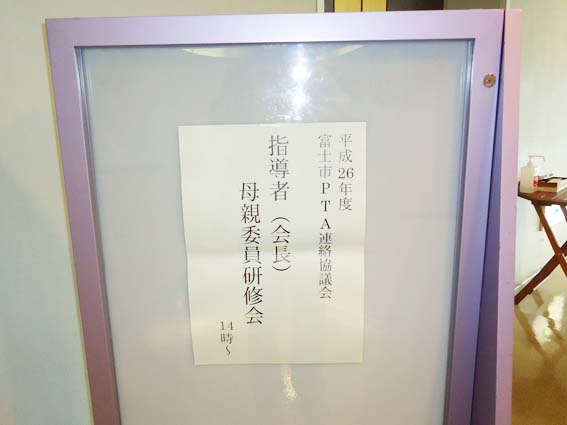 平成26年度
富士市PTA連絡協議会
指導者（会長）
母親委員研修会
14時～